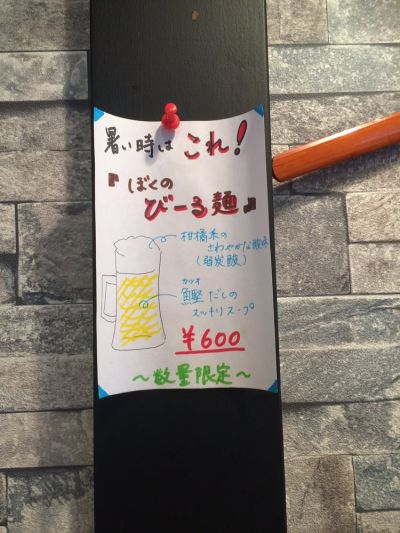 暑い時は これ!
『ぼくの
びーる麺』
柑橘系の
さわやかな酸味
(弱炭酸)
カツオ
鰹だしの
スッキリスープ
¥600
～数量限定～